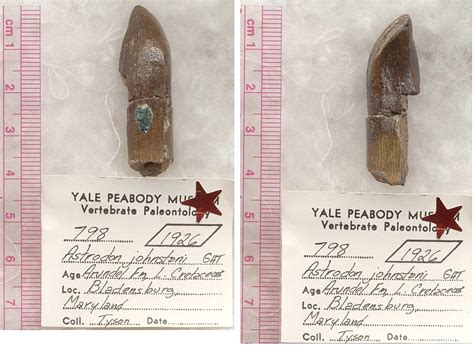 cm 1
2
3
4
5
6
7
YALE PEABODY MUSEUM
Vertebrate Paleontology
798 1926
Astrodon johnstoni
Age Arundel Fm L. Cretaceous
Loc. Bladensburg,
Maryland
Coll. Tyson Date
cm 1
2
3
4
5
6
7
YALE PEABODY MUSEUM
Vertebrate Paleontology
798 1926
Astrodon johnstoni
Age Arundel Fm L. Cretaceous
Loc. Bladensburg,
Maryland
Coll. Tyson Date